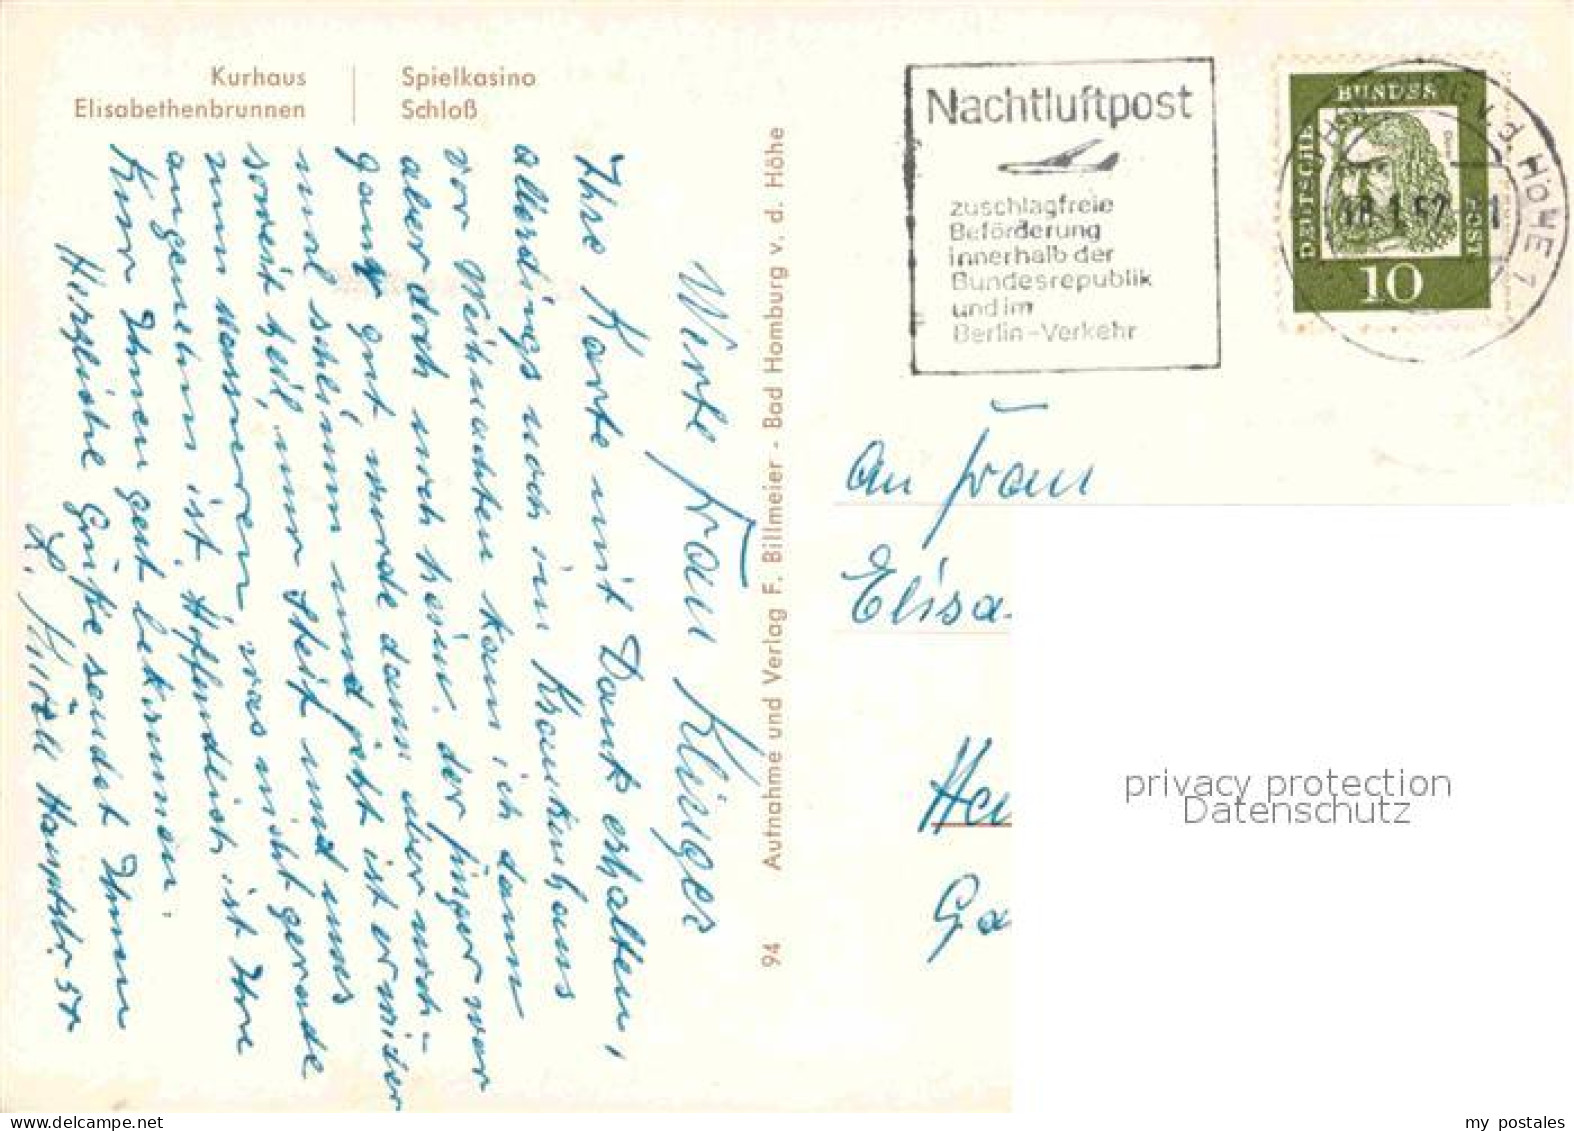 Kurhaus
Elisabethenbrunnen
Spielkasino
Schloß
Nachtluftpost
zuschlagfreie
Beförderung
innerhalb der
Bundesrepublik
und im
Berlin-Verkehr
DEUTSCHE
BUNDES
10
v.d. HÖHE 1
94 Aufnahme und Verlag F. Billmeier - Bad Homburg v. d. Höhe
Werte Frau Klinger
Ihre Karte mit Dank erhalten,
allerdings noch im Krankenhaus
vor Weihnachten kam ich dann
aber doch noch heim. der Finger war
ganz gut wurde dann aber noch-
mal schlimm und jetzt ist er wieder
soweit heil, nur steif und muss
nun massieren, was nicht gerade
angenehm ist. Hoffendlich ist Ihre
Kur Ihnen gut bekommen.
Herzliche Grüße sendet Ihnen
Hauptstr. 57
An Frau
Elisa
Ga
privacy protection
Datenschutz
my postales